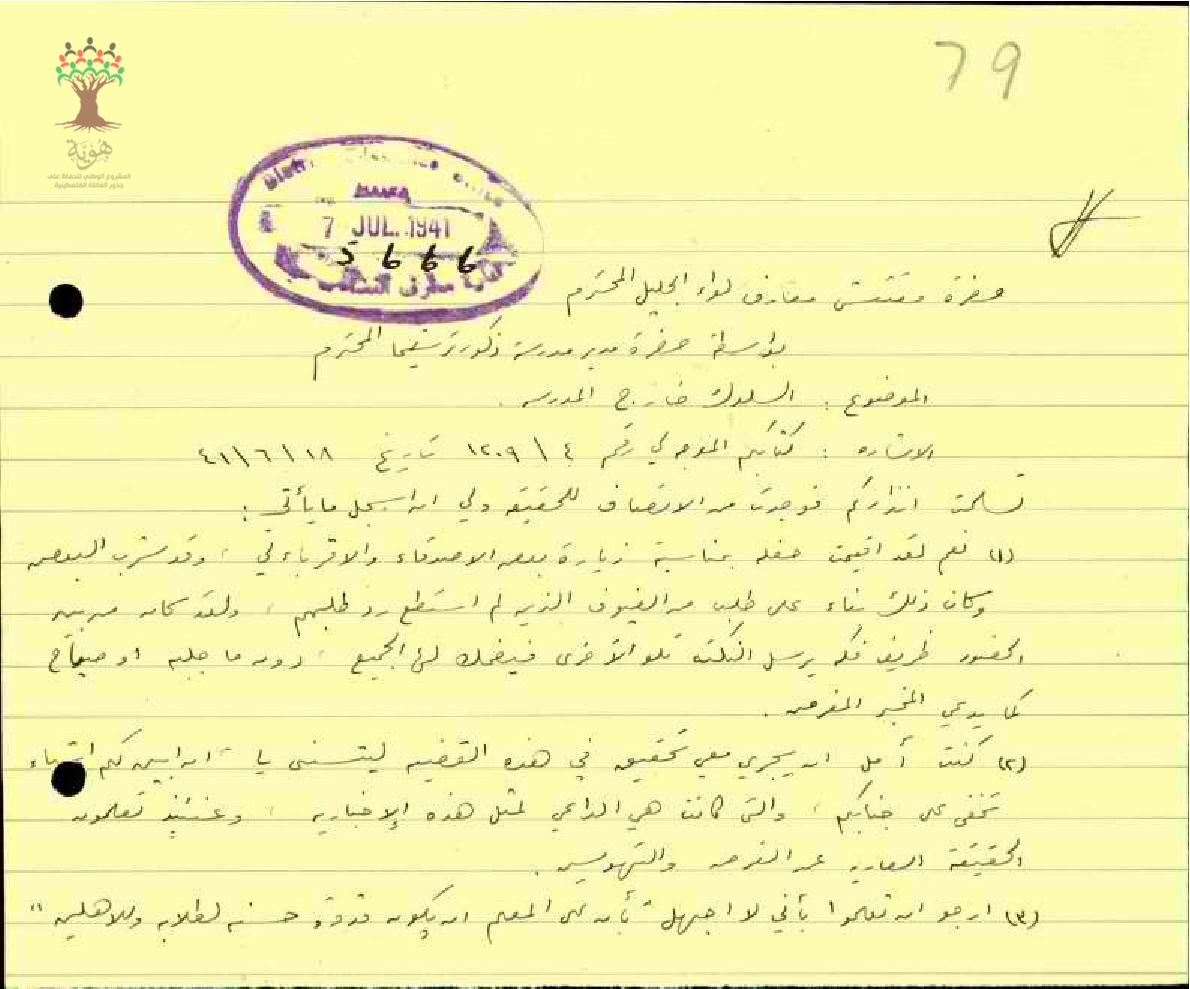 79
هُوِيَّة
المشروع الوطني للحفاظ على
جذور العائلة الفلسطينية
District
HAIFA
7 JUL. 1941
5666
حضرة مفتش معارف لواء الجليل المحترم
بواسطة حضرة مدير مدرسة ذكور ترشيحا المحترم
الموضوع : السلوك خارج المدرسه .
الاشاره : كتابكم الموجه لي رقم ٤ \ ١٢٠٩ تاريخ ١٨ \ ٦ \ ٤١
تسلمت انذاركم فوجدت من الانصاف للحقيقه ولي ان اسجل ما يأتي :
(١) نعم لقد اقيمت حفله بمناسبة زيارة بعض الاصدقاء والاقرباء لي ، وقد شرب البعض
وكان ذلك بناء على طلب من الضيوف الذين لم استطع رد طلبهم ، ولقد كان من بين
الحضور ظريف فكه يرسل النكته تلو الأخرى فيضحك لها الجميع ، دون ما جلبه او صياح
كما يدعي المخبر المغرض .
(٢) كنت آمل ان يجري معي تحقيق في هذه القضيه ليتسنى يا ، ان ابين لكم اشياء
تخفى على جنابكم ، والتي كانت هي الداعي لمثل هذه الإخباريه ، وعندئذ تعلمون
الحقيقة العاريه عن الغرض والتهويس .
(٣) ارجو ان تعلموا بأني لا اجهل " بأن على المعلم ان يكون قدوة حسنه لطلابه وللاهلين "